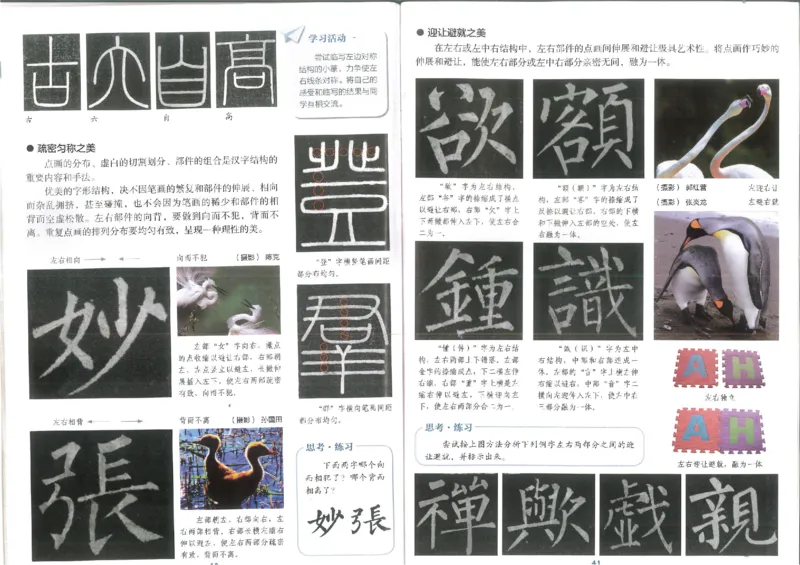 古
六
自
高
学习活动 一
尝试临写左边对称
结构的小篆，力争使左
右线条对称。将自己的
感受和临写的结果与同
学互相交流。
古
六
自
高
● 疏密匀称之美
点画的分布、虚白的切割划分、部件的组合是汉字结构的
重要内容和手法。
优美的字形结构，决不因笔画的繁复和部件的伸展、相向
而杂乱拥挤，甚至碰撞，也不会因为笔画的稀少和部件的相
背而空虚松散。左右部件的向背，要做到向而不犯，背而不
离。重复点画的排列分布要均匀有致，呈现一种理性的美。
登
“登”字横竖笔画间距
部分布均匀。
左右相向
向而不犯
（摄影）
妙
左部“女”字向右，重点
的点收缩以避让右部，右部朝
左，左点呈立以避左，长撇伸
展插入左下，使左右两部疏密
有致、向而不犯。
群
“群”字横向笔画间距
部分布均匀。
左右相背
背而不离
（摄影） 孙国田
張
左部朝左，右部向右，左
右两部相背，右部长横尖端右
伸以避左，使左右两部分疏密
有致、背而不离。
思考·练习
下面两字哪个向
而相犯了？哪个背而
相离了？
妙 張
● 迎让避就之美
在左右或左中右结构中，左右部件的点画间伸展和避让极具艺术性。将点画作巧妙的
伸展和避让，能使左右部分或左中右部分亲密无间，融为一体。
欲
額
“欲”字为左右结构，
左部“谷”字的捺缩成了横点
以避让右部，右部“欠”字上
下两撇都伸入左下，使左右合
二为一。
额（額）”字为左右结
构，左部“客”字的捺缩成了
反捺以避让右部，右部的下横
和下撇伸入左部的空处，使左
右融为一体。
（摄影） 郝红蕾
（摄影） 张炎龙
鍾
識
结
右结构，中部和右部连成一
体，左部的“言”字上横左伸
右缩以避右，中部“音”字二
三部分融为一体。
A H
左右独立
A H
左右迎让避就，融为一体
思考·练习
尝试按上图方法分析下列例字左右两部分之间的迎
让避就，并标示出来。
禪
歟
戲
親
41